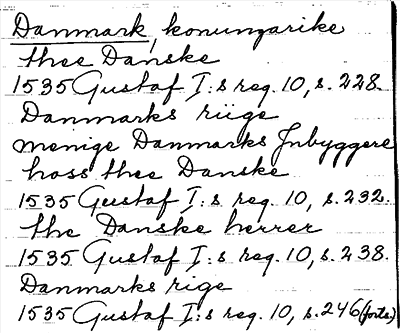 Danmark, konungarike
thee Danske
1535 Gustaf I:s reg. 10, s. 228.
Danmarks riige
menige Danmarks Inbyggere
hoss thee Danske
1535 Gustaf I:s reg. 10, s. 232.
the Danske herrer
1535 Gustaf I:s reg. 10, s. 238.
Danmarks rige
1535 Gustaf I:s reg. 10, s. 246 (forts.)